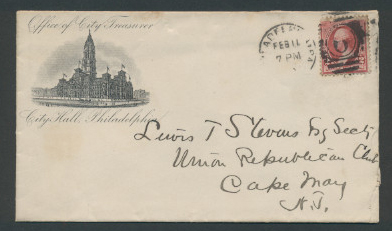 Office of City Treasurer
FEB 11
7 PM
City Hall, Philadelphia
Lewis T Stevens Esq Secty
Union Republican Club
Cape May
N.J.